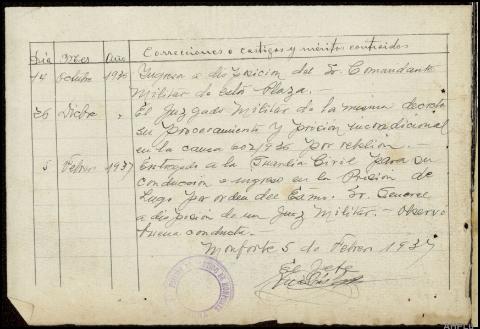 Día Mes Año Correcciones o castigos y méritos contraidos
14 Octubre 1936 Ingresa a disposicion del Sr. Comandante
Militar de esta Plaza.—
26 Dicbre " El Juzgado Militar de la misma decreta
su procesamiento y prisión incondicional
en la causa 602/936 por rebelion.—
5 Febrero 1937 Entregado a la Guardia Civil para su
conducción e ingreso en la Prisión de
Lugo por orden del Excmo. Sr. General
a disposición de un Juez Militar.— Observó
buena conducta.—
Monforte 5 de Febrero 1937
El Jefe